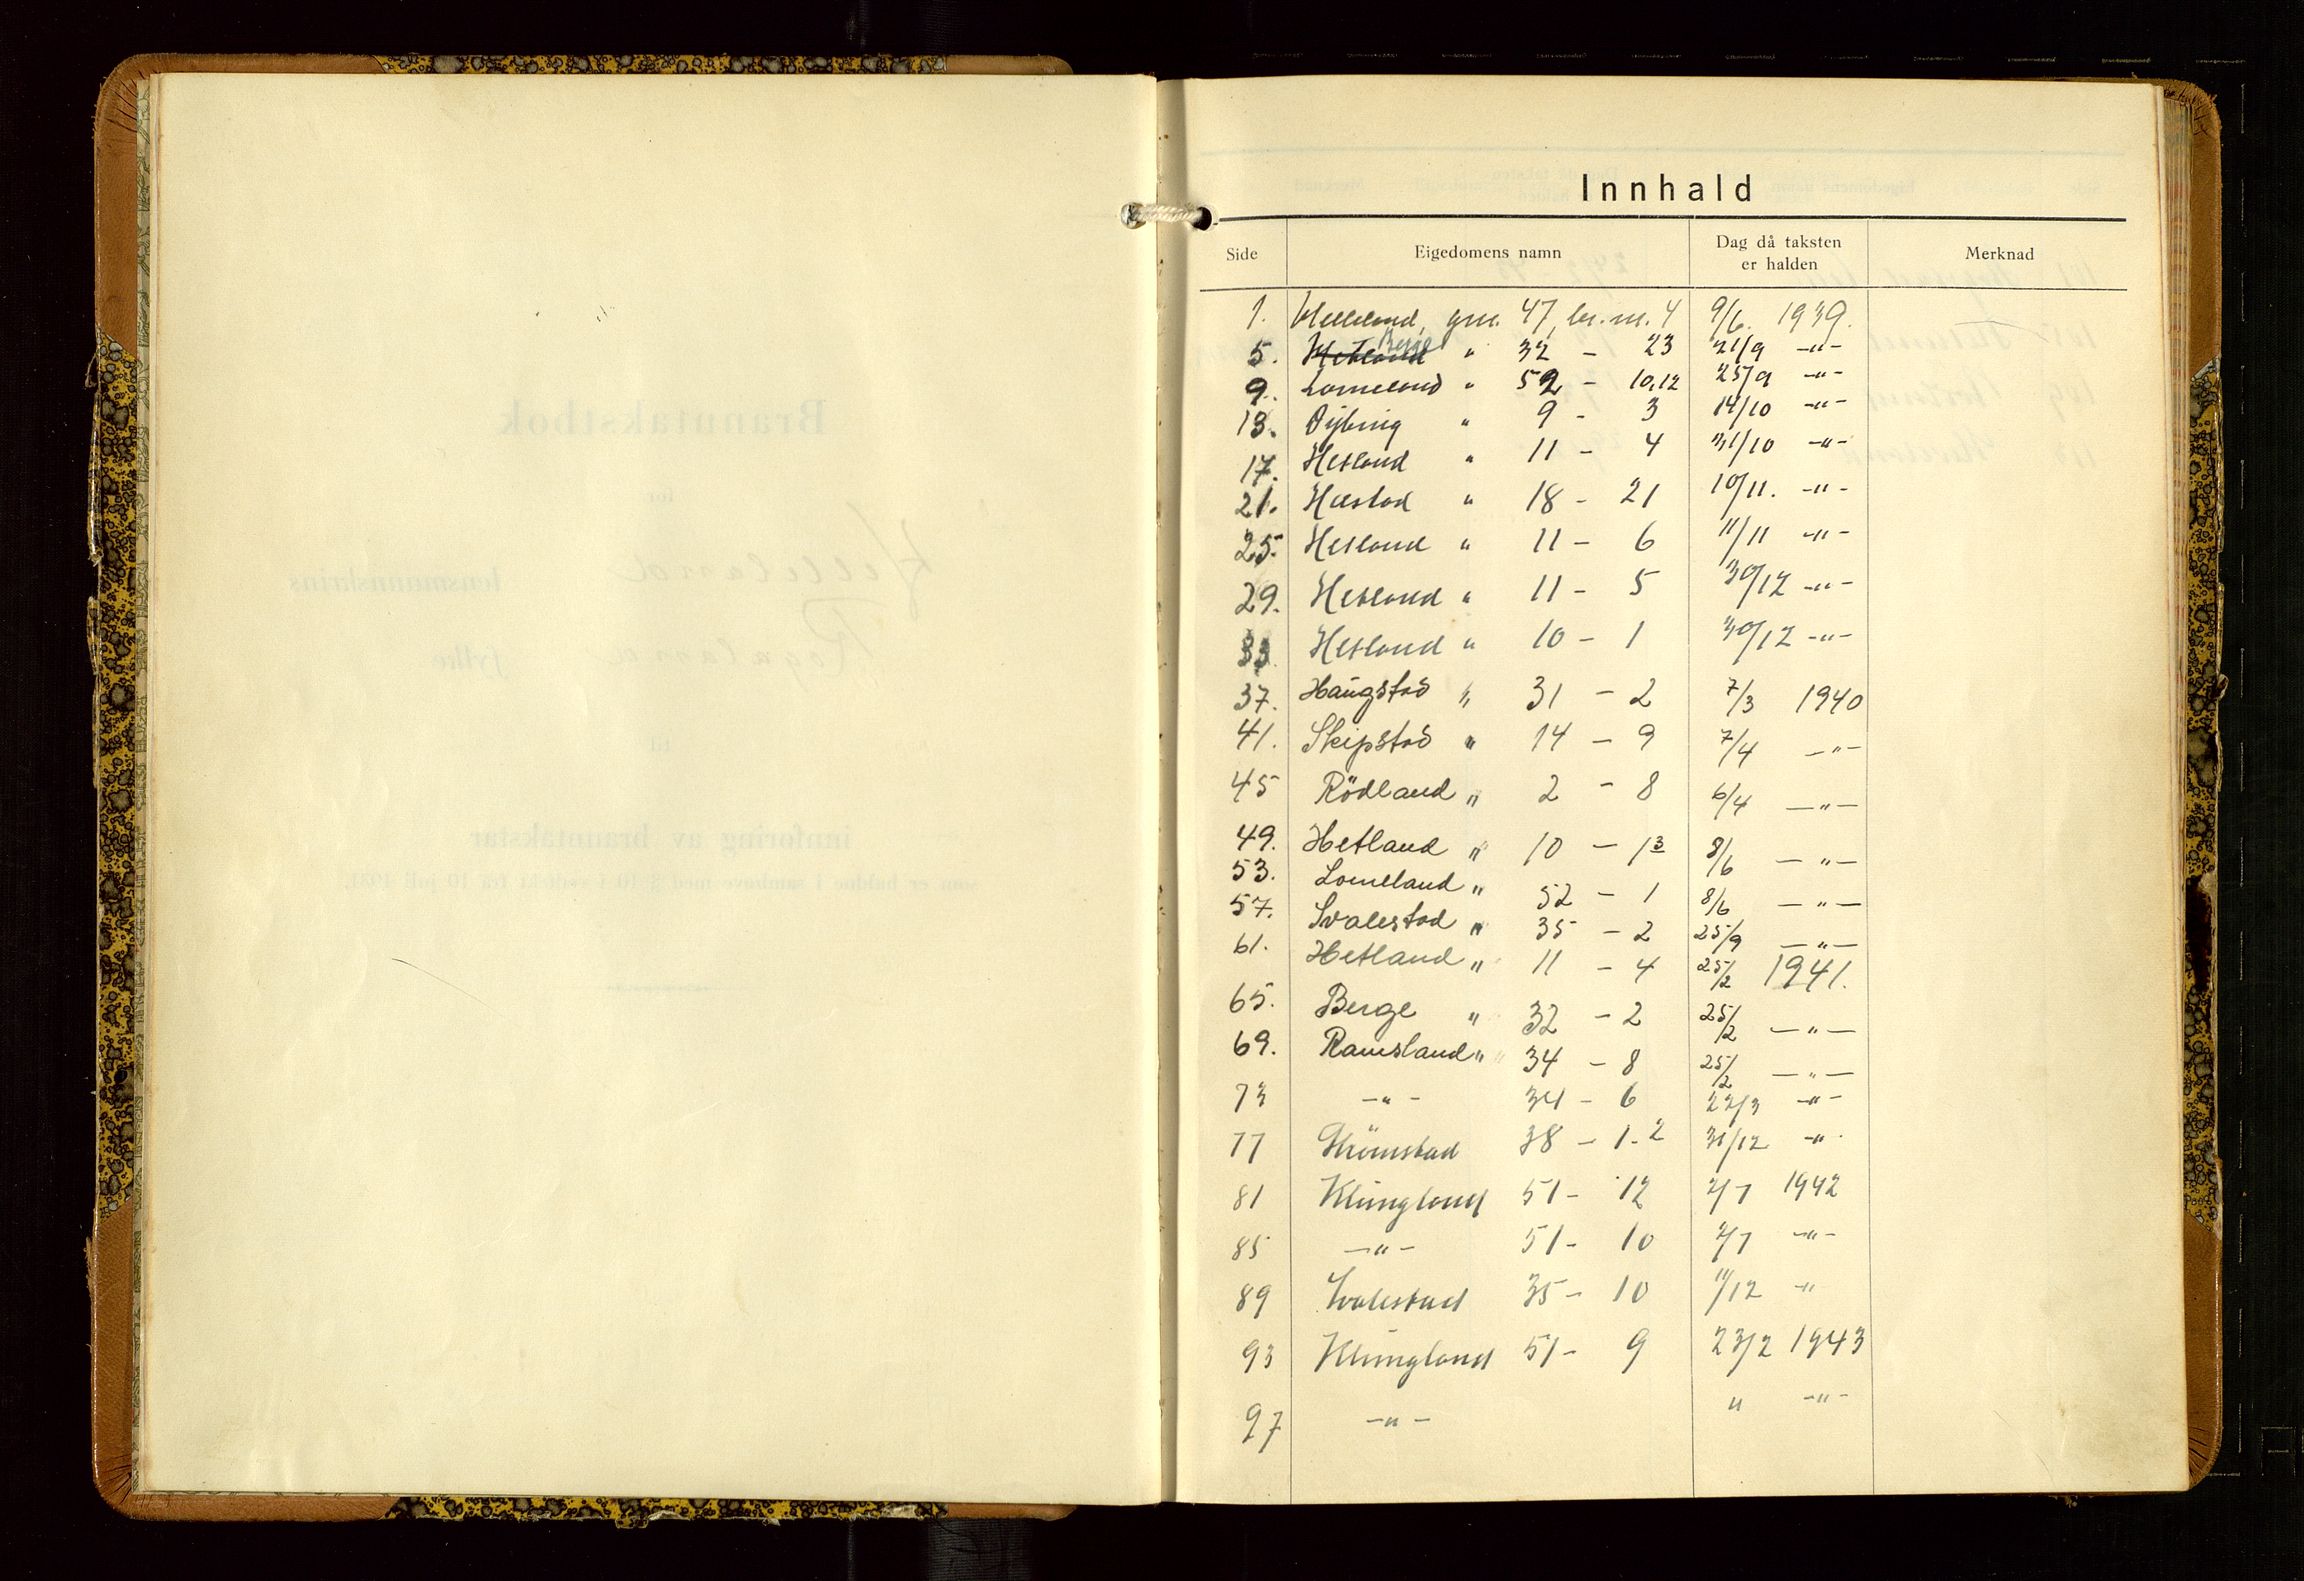 Innhald
Side Eigedomens namn Dag då taksten er halden Merknad
1. Helleland, gnr. 47, br. nr. 4 9/6. 1939.
5. Hetland Berge " 32 - 23 21/9 -"-
9. Lomeland " 52 - 10,12 25/9 -"-
13. Øybrig " 9 - 3 14/10 -"-
17. Hetland " 11 - 4 31/10 -"-
21. " 18 - 21 10/11. -"-
25. Hetland " 11 - 6 11/11 -"-
29. Hetland " 11 - 5 30/12 -"-
33. Hetland " 10 - 1 30/12 -"-
37. Haugstad " 31 - 2 7/3 1940
41. Skipstad " 14 - 9 7/4 -"-
45 Rödland " 2 - 8 6/4 -"-
49. Hetland " 10 - 13 8/6 -"-
53. Lomeland " 52 - 1 8/6 -"-
57. Svalestad " 35 - 2 25/9 -"-
61. Hetland " 11 - 4 25/2 1941.
65. Berge " 32 - 2 25/2 -"-
69. Ramsland " 34 - 8 25/2 -"-
73 -"- 34 - 6 22/3 -"-
77 Strömstad 38 - 1-2 31/12 -"-
81 Klungland 51 - 12 2/7 1942
85 -"- 51 - 10 2/7 -"-
89 Svalestad 35 - 10 11/12 -"-
93 Klungland 51 - 9 23/2 1943
97 -"- " -"-